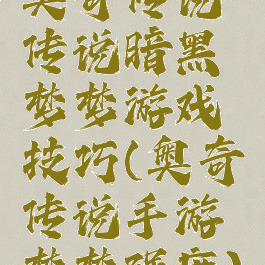 奥奇传说
传说暗黑
梦梦游戏
技巧(奥奇
传说手游
梦梦强度)